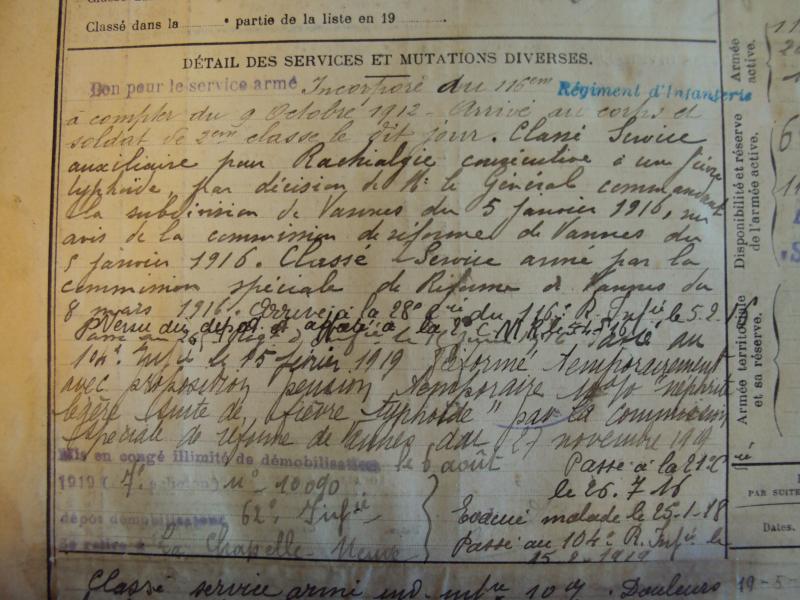 Classé dans la e partie de la liste en 19
DÉTAIL DES SERVICES ET MUTATIONS DIVERSES.
Bon pour le service armé Incorporé du 116em Régiment d'Infanterie
à compter du 9 Octobre 1912 - Arrivé au corps et
soldat de 2em classe le dit jour. Classé Service
auxiliaire pour Rachialgie consécutive à un fièvre
typhoïde, par décision de Mr le Général commandant
la subdivision de Vannes du 5 janvier 1916, sur
avis de la commission de réforme de Vannes du
5 janvier 1916. Classé Service armé par la
commission spéciale de Réforme de Vannes du
8 mars 1916. Arrivé à la 28e Cie du 116e R. Infie le 5.2.
Venu du dépôt et affecté à la 2e C.M.R. le 5.4.16
Passé au
104e Infie le 15 février 1919 Réformé temporairement
avec proposition pension temporaire 10% "néphrite
légère suite de fièvre typhoïde" par la Commission
spéciale de réforme de Vannes du 27 novembre 1919
Mis en congé illimité de démobilisation le 6 août
1919 (4e échelon) No 10090
dépôt démobilisateur 62e Infie
se retire à La Chapelle Neuve
Passé à la 21e Cie
le 26.7.16
Evacué malade le 25-1-18
Passé au 104e R. Infie le
15-2-1919
Classé service armé ind. 10% Douleurs
Armée active.
Disponibilité et réserve de l'armée active.
Armée territoriale et sa réserve.
PAR SUITE
Dates.
19-5-